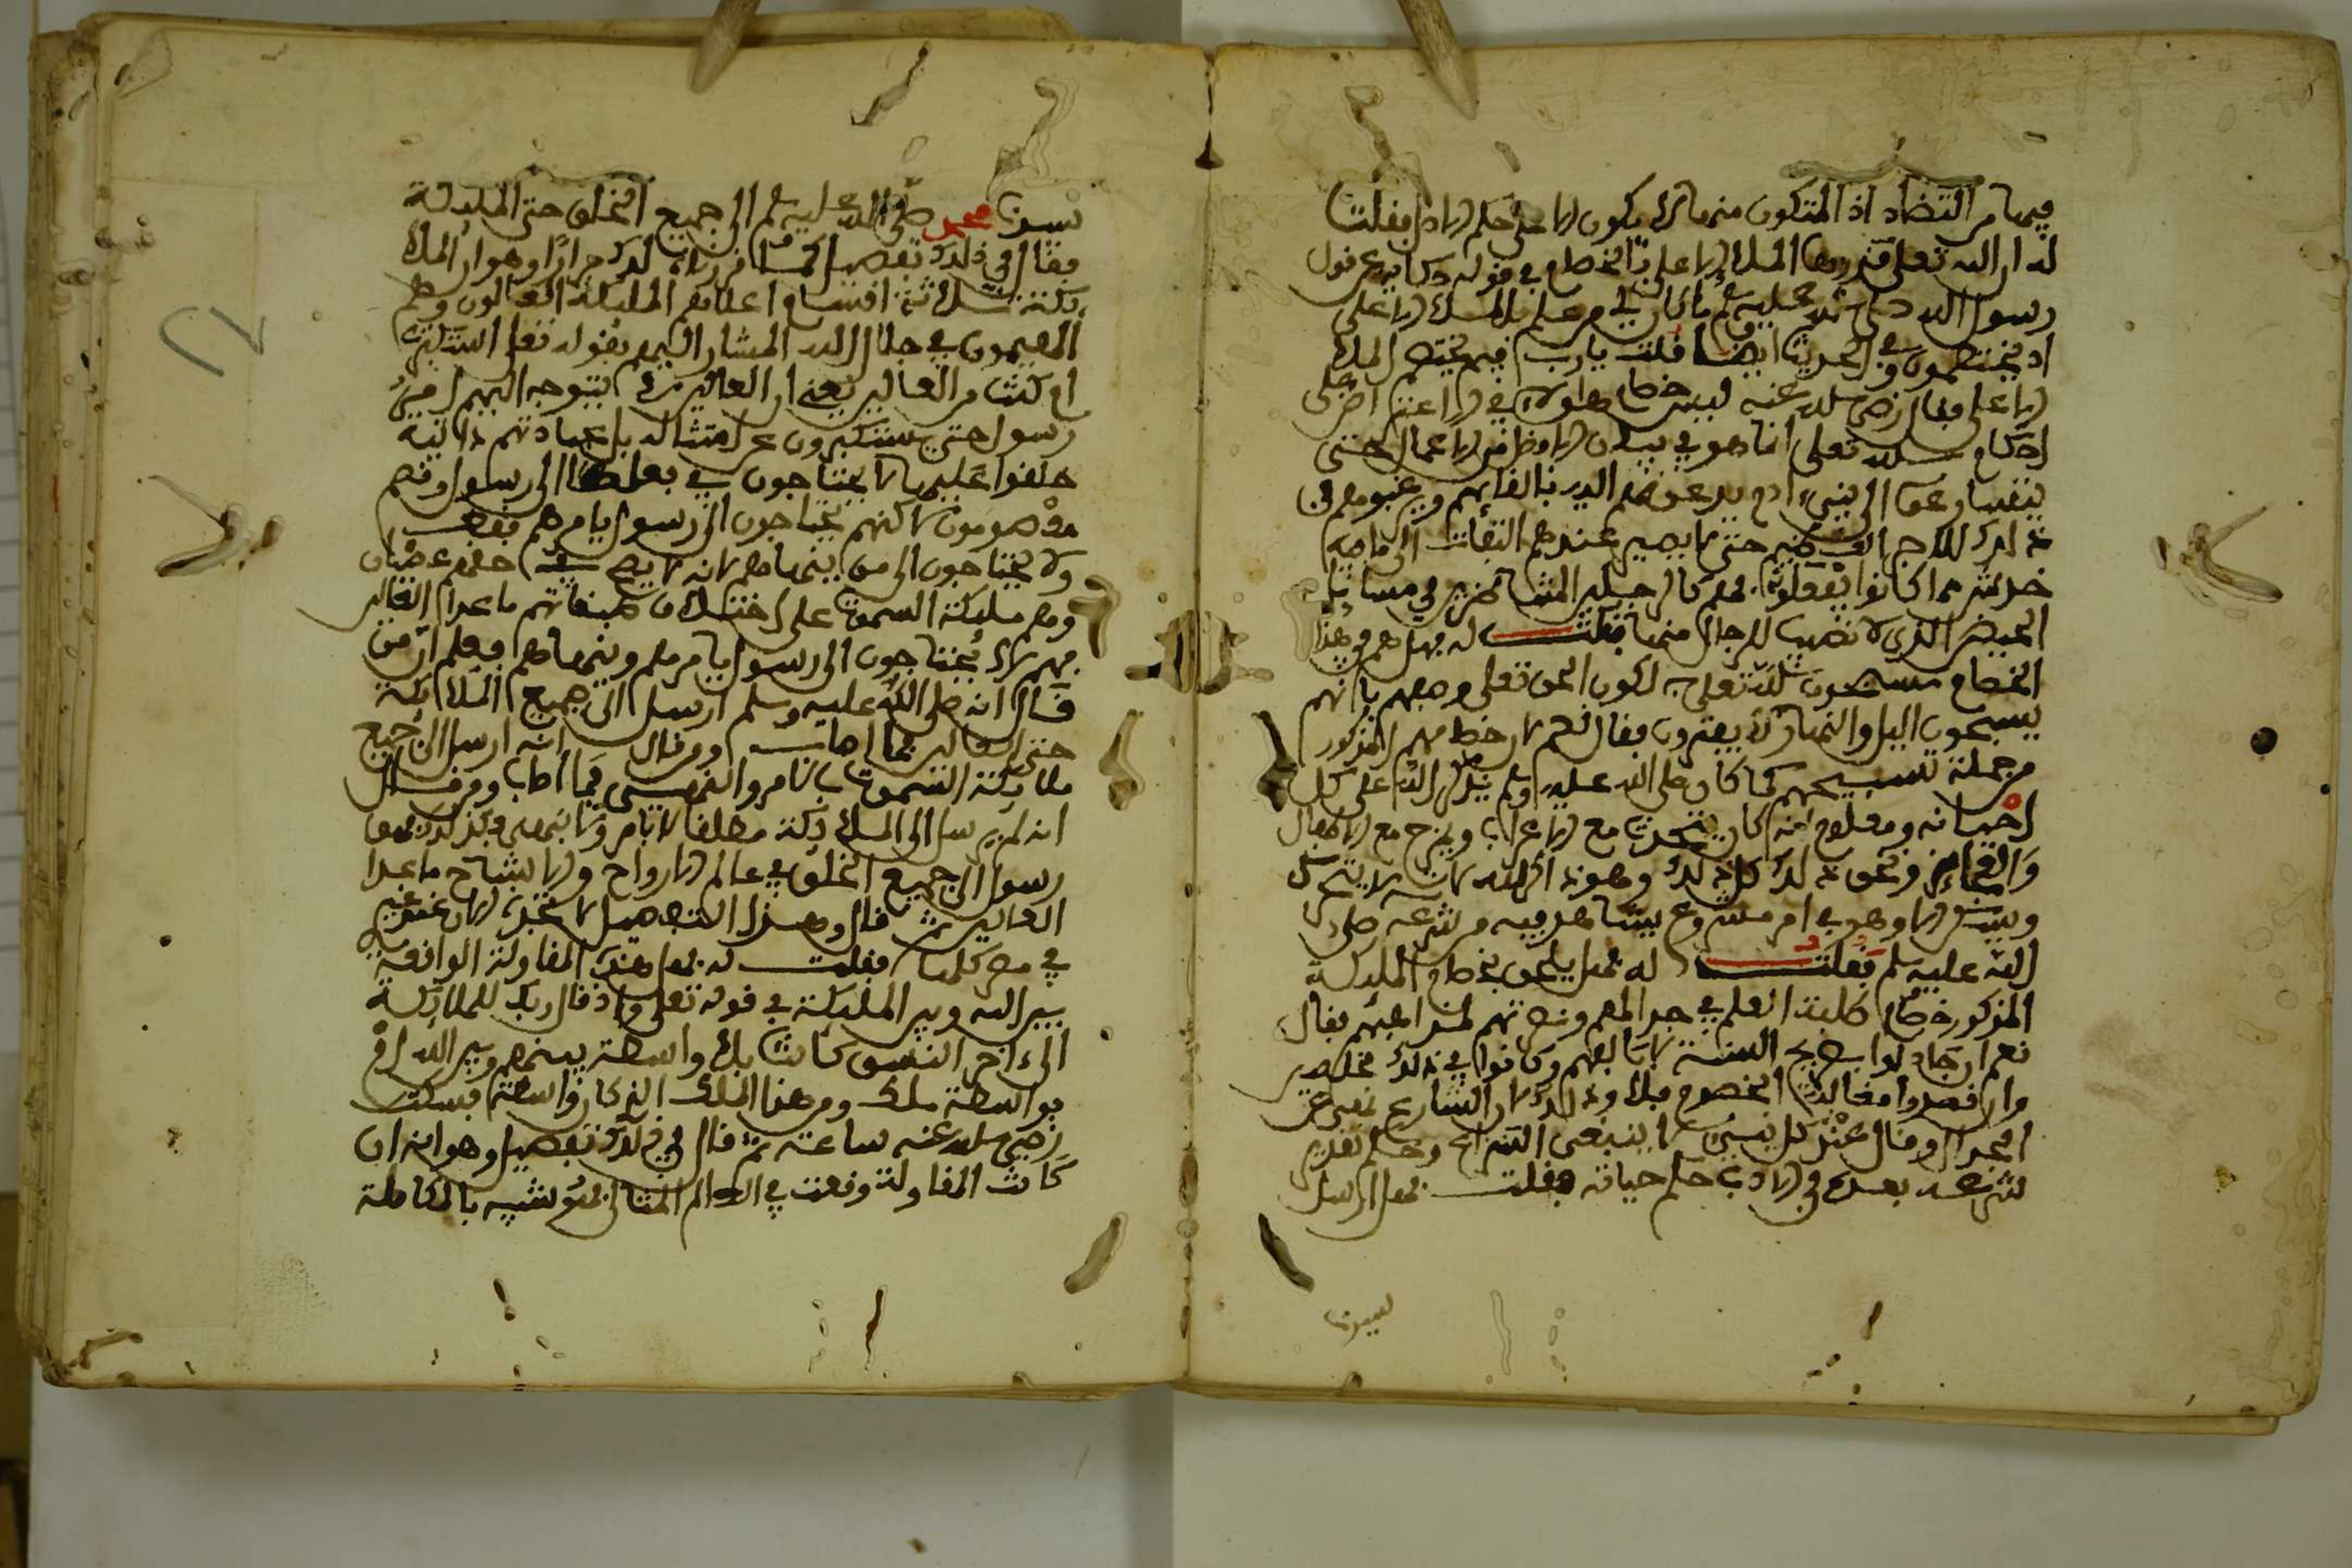 فيها من التضاد اذ المتكون منها لا يكون الا على حكم الاصل فقلت
له ان الله تعلى قد وصف الملا الاعلى بالخصام في قوله حكاية عن قول
رسول الله صلى الله عليه وسلم ما كان لي من علم بالملا الاعلى
اذ يختصمون وفي الحديث ايضا قلت يا رب فيم يختصم الملا
الاعلى فقال رضي الله عنه ليس خصام هؤلاء في الاعتراض على
احكام الله تعلى انما هو في بيان الافضل من الاعمال حتى
ينفسا وعوا الى بني ادم يدعونهم الذين بالفانهم ويرغبونهم في
ذلك للاجر الفخيم حتى لا يصير عندهم التفات الى ما فيه
خدش مما كانوا يفعلونه فهم كالرجلين المتناظرين في مسائل
الحيض الذي لا نصيب للرجال منها فقلت له فهل هم في هذا
الخصام مسبحون لله تعلى لكون الحق تعلى وصفهم بانهم
يسبحون اليل والنهار لا يفترون فقال نعم لان خصامهم المذكور
من جملة تسبيحهم كما كان صلى الله عليه وسلم يذكر الله على كل
احيانه ومعلوم انه كان يتحدث مع الاعراب ويمزح مع الاطفال
والعجائز ونحو ذلك كل ذلك وهو ذاكر لله لانه لا يتحرك
ويسكن الا وهو في امر مشروع يشاهد فيه من شرعه صلى
الله عليه وسلم فقلت له فهل يلحق بخصام الملئكة
المذكور خصام طلبة العلم في جدالهم ونصرتهم لمذاهبهم فقال
نعم ان جادلوا بصريح السنة لا بالفهم وكانوا في ذلك مخلصين
وان قصدوا مغالبة الخصوم فلا وذلك لان الشارع نهى عن
الجدال وقال عند كل نبي لا ينبغي التنازع وحكم تقديم
شرعه بعده في الادب حكم حياته فقلت فهل ارسل
سيدنا
سيدنا محمد صلى الله عليه وسلم الى جميع الخلق حتى الملئكة
فقال في ذلك تفصيل كما قررناه لك مرارا وهو ان الملا
ئكة ثلاثة اقسام اعلاهم الملئكة العالون وهم
المهيمون في جلال الله المشار اليهم بقوله تعلى استكبرت
ام كنت من العالين يعني ان العالين لا يتوجه اليهم امر من
رسول حتى يستكبرون عن امتثاله بل عبادتهم ذاتية
خلقوا عليها لا يحتاجون في فعلها الى رسول وقسم
مفهومون لكنهم يحتاجون الى رسول يامرهم فقط
ولا يحتاجون الى من ينهاهم لانه لا يصح في حقهم عصيان
وهم ملئكة السموات على اختلاف طبقاتهم ما عدا العالين
فهم لا يحتاجون الى رسول يامرهم وينهاهم فعلم ان من
قال انه صلى الله عليه وسلم ارسل الى جميع الملائكة
حتى العالين فما اصاب ومن قال انه ارسل الى جميع
ملائكة السموات بالامر والنهي فما اصاب ومن قال
انه لم يرسل الى الملائكة مطلقا لا بامر ولا بنهي فكذلك فهو
رسول الى جميع الخلق في عالم الارواح والاشباح ما عدا
العالين ثم قال وهذا التفصيل لا تجده الان عند غير
في مصر كلها فقلت له فهل هذه المقاولة الواقعة
بين الله وبين الملئكة في قوله تعلى واذ قال ربك للملائكة
الى ءاخر النسق كانت بلا واسطة بينهم وبين الله ام
بواسطة ملك ومن هذا الملك الذي كان واسطة فسكت
رضي الله عنه ساعة ثم قال لي في ذلك تفصيل وهو انه ان
كانت المقاولة وقعت في العالم المثالي فهو شبيه بالمكالمة